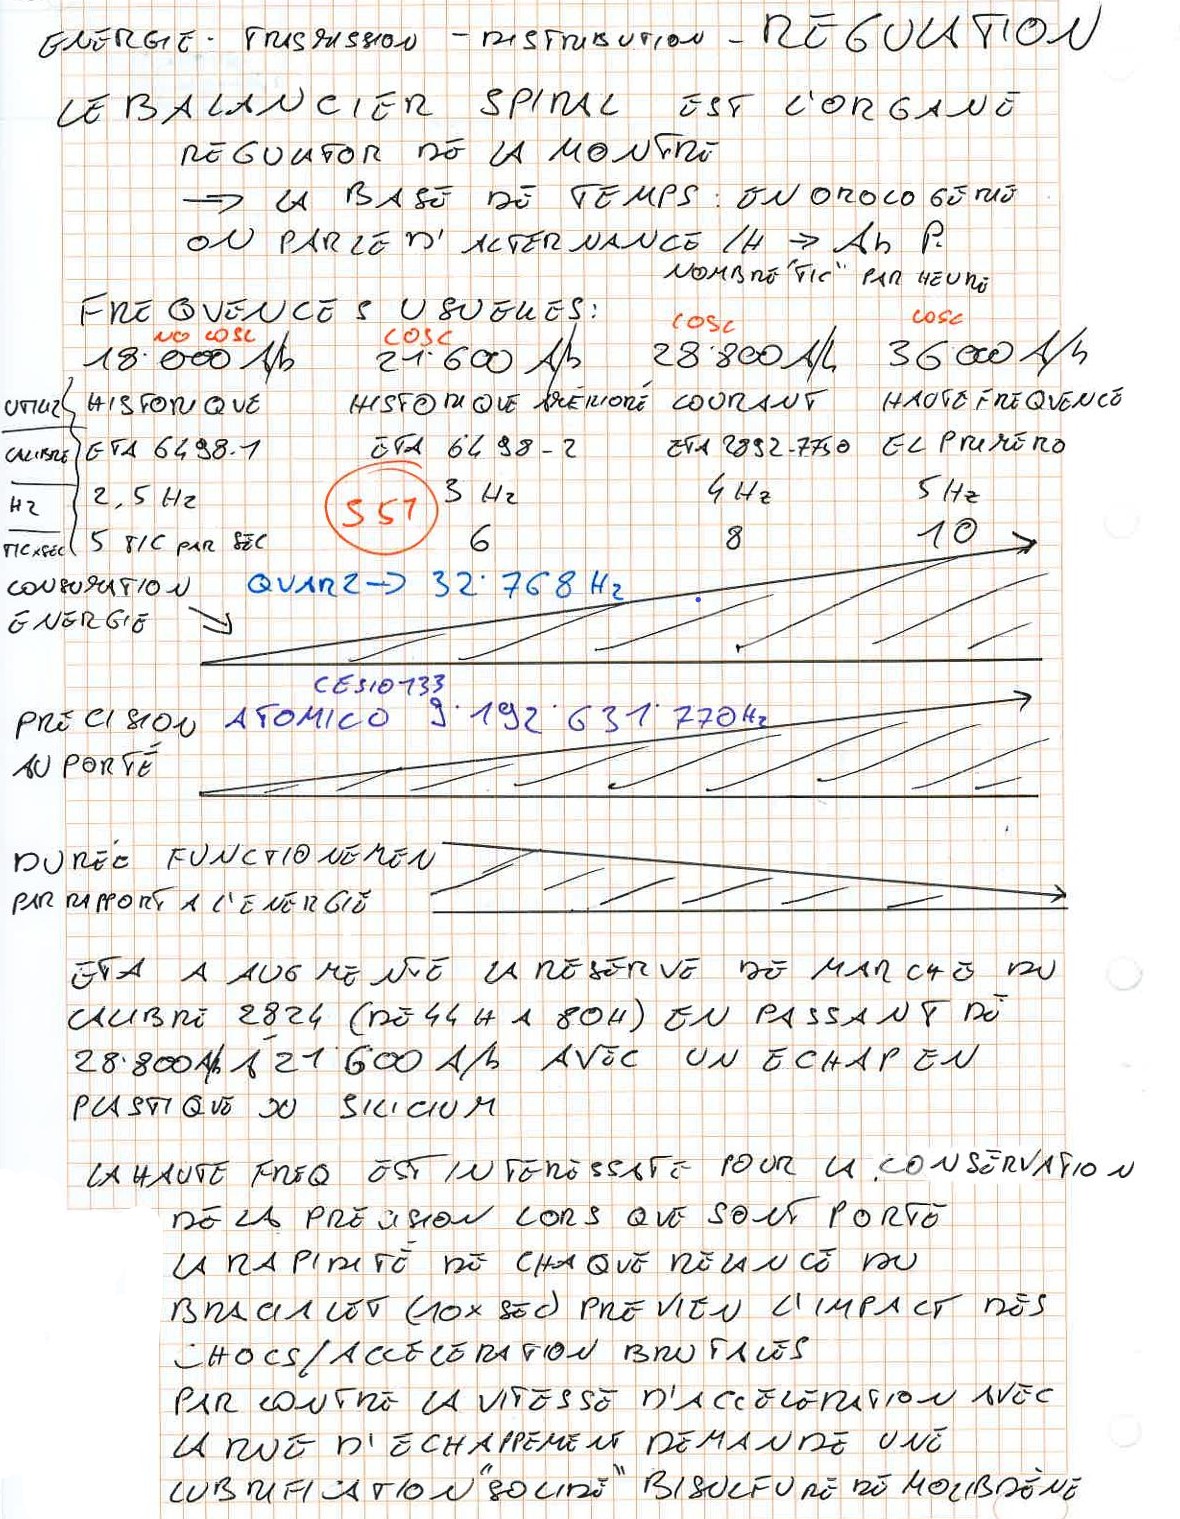 ENERGIE - TRISMISSION - DISTRIBUTION - REGULATION
LE BALANCIER SPIRAL EST L'ORGANE
REGULATOR DE LA MONTRE
→ LA BASE DE TEMPS : EN OROLOGERIE
ON PARLE D'ALTERNANCE /H → A/h P.
NOMBRE "TIC" PAR HEURE
FREQUENCES USUELLES:
NO COSC COSC COSC COSC
18.000 A/h 21.600 A/h 28.800 A/h 36000 A/h
UTILIZ HISTORIQUE HISTORIQUE COURANT HAUTE FREQUENCE
CALIBRE ETA 6498.1 ETA 6498-2 ETA 2892-7750 EL PRIMERO
HZ 2,5 Hz 3 Hz 4 Hz 5 Hz
S51
TICxSEC 5 TIC PAR SEC 6 8 10
CONSUMATION QUARZ → 32.768 Hz
ENERGIE
CESIO 133
PRECISION ATOMICO 9.192.631.770 Hz
AU PORTÉ
DURÉE FUNCTIONEMEN
PAR RAPPORT A L'ENERGIE
ETA A AUGMENTE LA RESERVE DE MARCHE DU
CALIBRE 2824 (DE 44H A 80H) EN PASSANT DE
28.800 A/h À 21.600 A/h AVEC UN ECHAP EN
PLASTIQUE OU SILICIUM
LA HAUTE FREQ EST INTERESSATE POUR LA CONSERVATION
DE LA PRECISION LORS QUE SONT PORTE
LA RAPIDITÉ DE CHAQUE RELANCE DU
BRACIALET (10x SEC) PREVIEN L'IMPACT DES
CHOCS/ACCELERATION BRUTALES
PAR CONTRE LA VITESSE D'ACCELERATION AVEC
LA RUE D'ECHAPPEMENT DEMANDE UNE
LUBRIFICATION "SOLIDE" BISULFURE DE MOLIBDENE